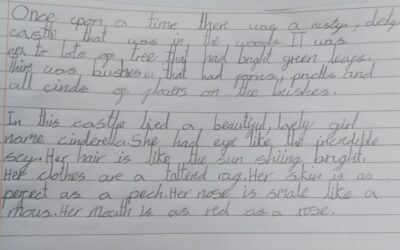 Once upon a time there was a rusty, dusty
castle that was in the woods. IT was
nex to lots of tree that had bright green leavs.
There was bushes that had forns, prells and
all cinds of flowers on the bushes.
In this castle lived a beautiful, lovely girl
name cinderella. She had eye like the incredible
scy. Her hair is like the sun shiing bright.
Her clothes are a tattered rag. Her skin is as
perfect as a pech. Her nose is smale like a
mous. Her mouth is as red as a rose.